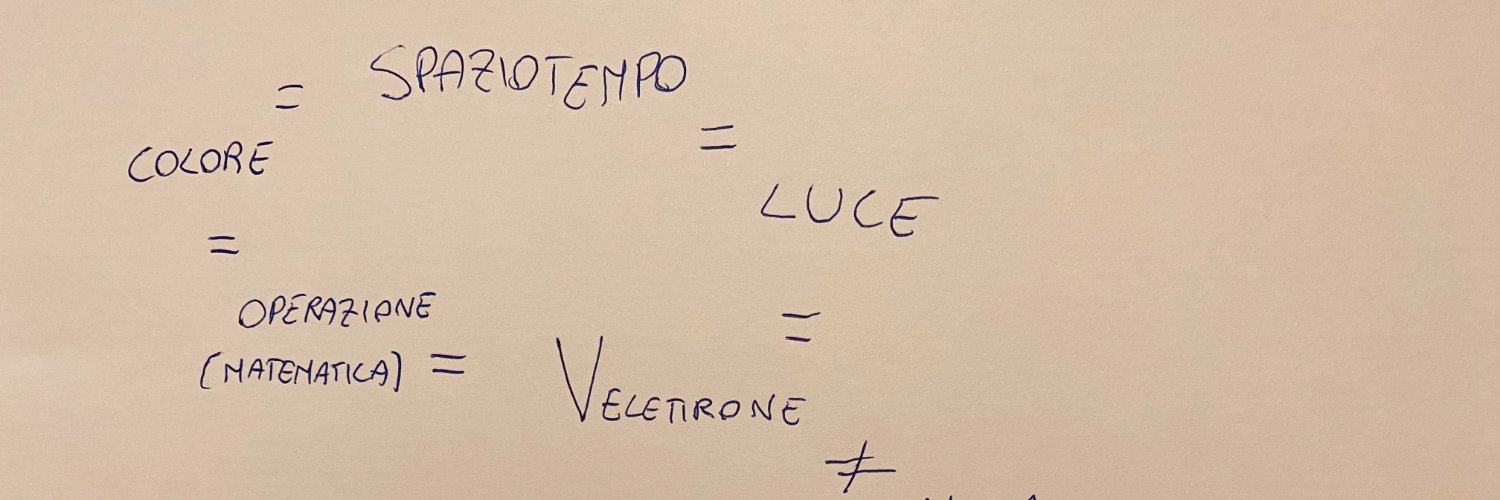 = SPAZIOTEMPO
=
COLORE
LUCE
=
OPERAZIONE
=
(MATEMATICA) = VELETTRONE
≠